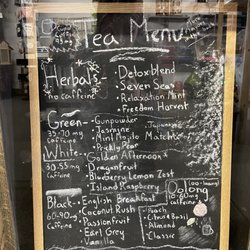 Tea Menu
Herbals-
no caffeine
Detox blend
Seven Seas
Relaxation Mint
Freedom Harvest
Green-
35-70 mg
caffeine
Gunpowder
Jasmine
Mint Mojito
Matcha
Prickly Pear
White-
30-55 mg
caffeine
Golden Afternoon
Dragonfruit
Blueberry Lemon Zest
Island Raspberry
Black-
60-90
caffeine
English Breakfast
Coconut Rush
Passionfruit
Earl Grey
Vanilla
Oolong
caffeine
Peach
Apricot Basil
Almond
Classic